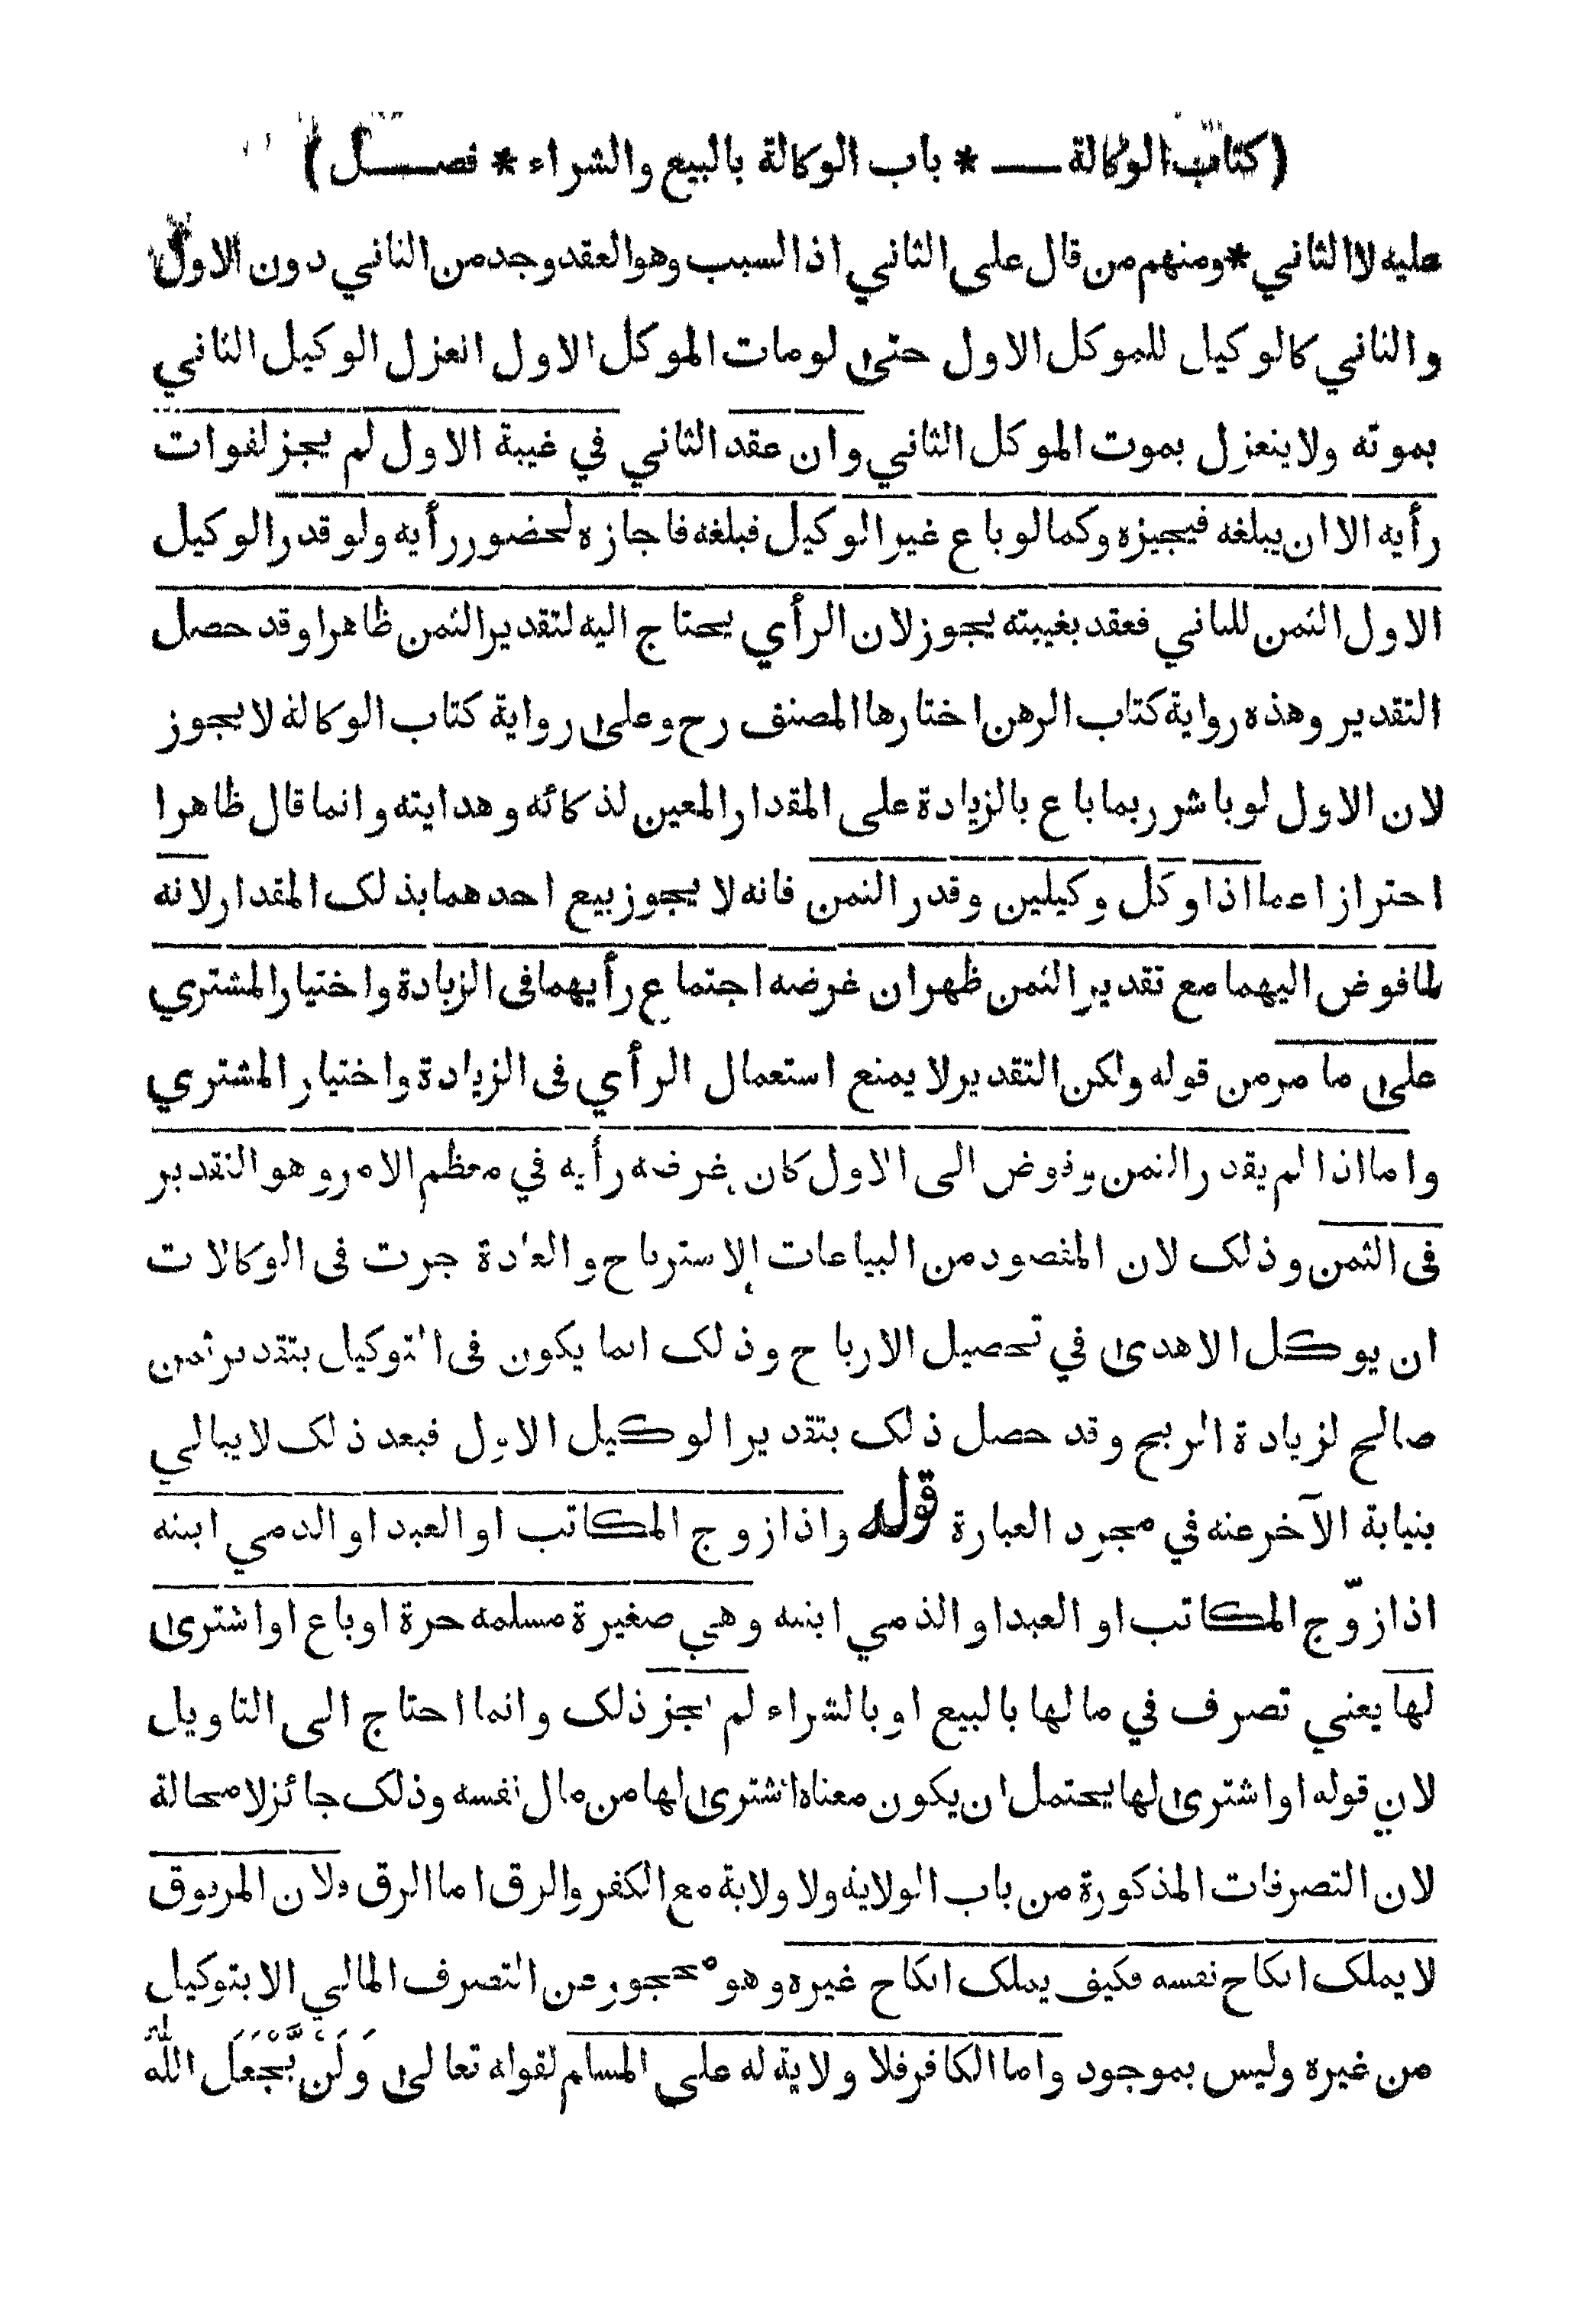 (كتاب الوكالة — * باب الوكالة بالبيع والشراء * فصل)
عليه لا الثاني * ومنهم من قال على الثاني اذ السبب وهو العقد وجد من الثاني دون الاول
والثاني كالوكيل للموكل الاول حتى لو مات الموكل الاول انعزل الوكيل الثاني
بموته ولا ينعزل بموت الموكل الثاني وان عقد الثاني في غيبة الاول لم يجز لفوات
رأيه الا ان يبلغه فيجيزه وكما لو باع غير الوكيل فبلغه فاجازه لحضور رأيه ولو قدر الوكيل
الاول الثمن للثاني فعقد بغيبته يجوز لان الرأي يحتاج اليه لتقدير الثمن ظاهرا وقد حصل
التقدير وهذه رواية كتاب الرهن اختارها المصنف رح وعلى رواية كتاب الوكالة لا يجوز
لان الاول لو باشر ربما باع بالزيادة على المقدار المعين لذكائه وهدايته وانما قال ظاهرا
احترازا عما اذا وكل وكيلين وقدر الثمن فانه لا يجوز بيع احدهما بذلك المقدار لانه
لما فوض اليهما مع تقدير الثمن ظهر ان غرضه اجتماع رأيهما في الزيادة واختيار المشتري
على ما مر من قوله ولكن التقدير لا يمنع استعمال الرأي في الزيادة واختيار المشتري
واما اذا لم يقدر الثمن وفوض الى الاول كان غرضه رأيه في معظم الامر وهو التقدير
في الثمن وذلك لان المقصود من البياعات الاسترباح والعادة جرت في الوكالات
ان يوكل الاهدى في تحصيل الارباح وذلك انما يكون في التوكيل بتقدير ثمن
صالح لزيادة الربح وقد حصل ذلك بتقدير الوكيل الاول فبعد ذلك لا يبالي
بنيابة الآخر عنه في مجرد العبارة قوله واذا زوج المكاتب او العبد او الذمي ابنته
اذا زوّج المكاتب او العبد او الذمي ابنته وهي صغيرة مسلمه حرة او باع او اشترى
لها يعني تصرف في مالها بالبيع او بالشراء لم يجز ذلك وانما احتاج الى التاويل
لان قوله او اشترى لها يحتمل ان يكون معناه اشترى لها من مال نفسه وذلك جائز لا محالة
لان التصرفات المذكورة من باب الولاية ولا ولاية مع الكفر والرق اما الرق فلان المرقوق
لا يملك انكاح نفسه فكيف يملك انكاح غيره وهو محجور عن التصرف المالي الا بتوكيل
من غيره وليس بموجود واما الكافر فلا ولاية له على المسلم لقوله تعالى وَلَنْ يَّجْعَلَ اللّٰهُ